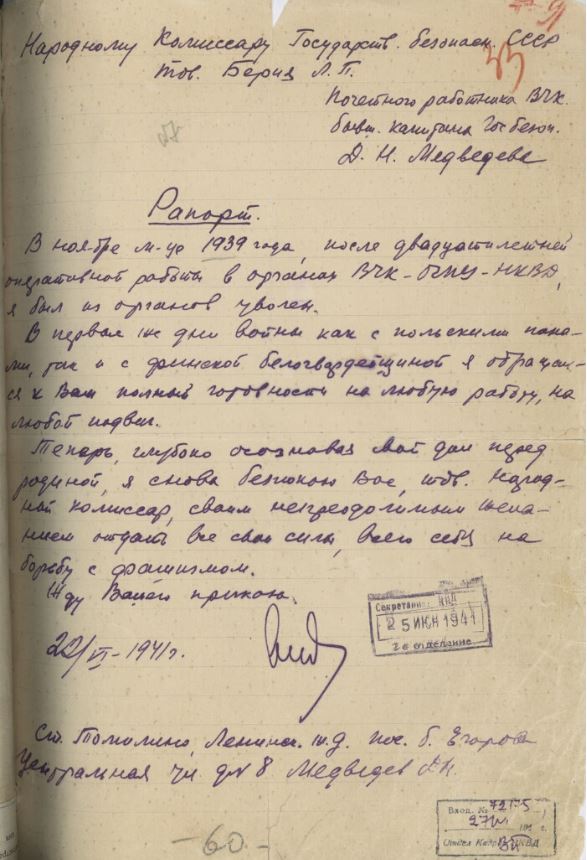 Народному Комиссару Государств. безопасн. СССР
тов. Берия Л. П.
Почетного работника ВЧК
бывш. капитана Гос безоп.
Д. Н. Медведева
Рапорт.
В ноябре м-це 1939 года, после двадцатилетней
оперативной работы в органах ВЧК-ОГПУ-НКВД,
я был из органов уволен.
В первые же дни войны как с польскими пана-
ми, так и с финской белогвардейщиной я обращал-
ся к Вам полный готовности на любую работу, на
любой подвиг.
Теперь, глубоко осознавая мой долг перед
родиной, я снова беспокою Вас, тов. Народ-
ный комиссар, своим непреодолимым жела-
нием отдать все свои силы, всего себя на
борьбу с фашизмом.
Жду Вашего приказа.
Секретариат НКВД
25 ИЮН 1941
2-е отделение
22/VI-1941г.
Ст. Томилино, Ленинск. ж.д. пос. б. Егорова
Центральная ул. дм 8 Медведев Д.Н.
Вход. № 72175
27/VI 194 г.
Отдел Кадров НКВД
-60-